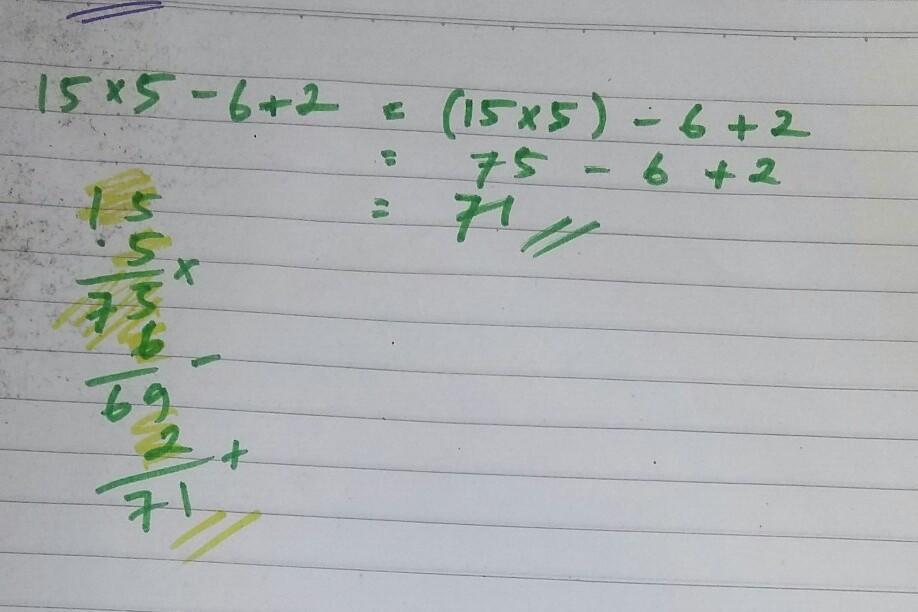 15 × 5 - 6 + 2 = (15 × 5) - 6 + 2
= 75 - 6 + 2
= 71
15
5 ×
75
6 -
69
2 +
71